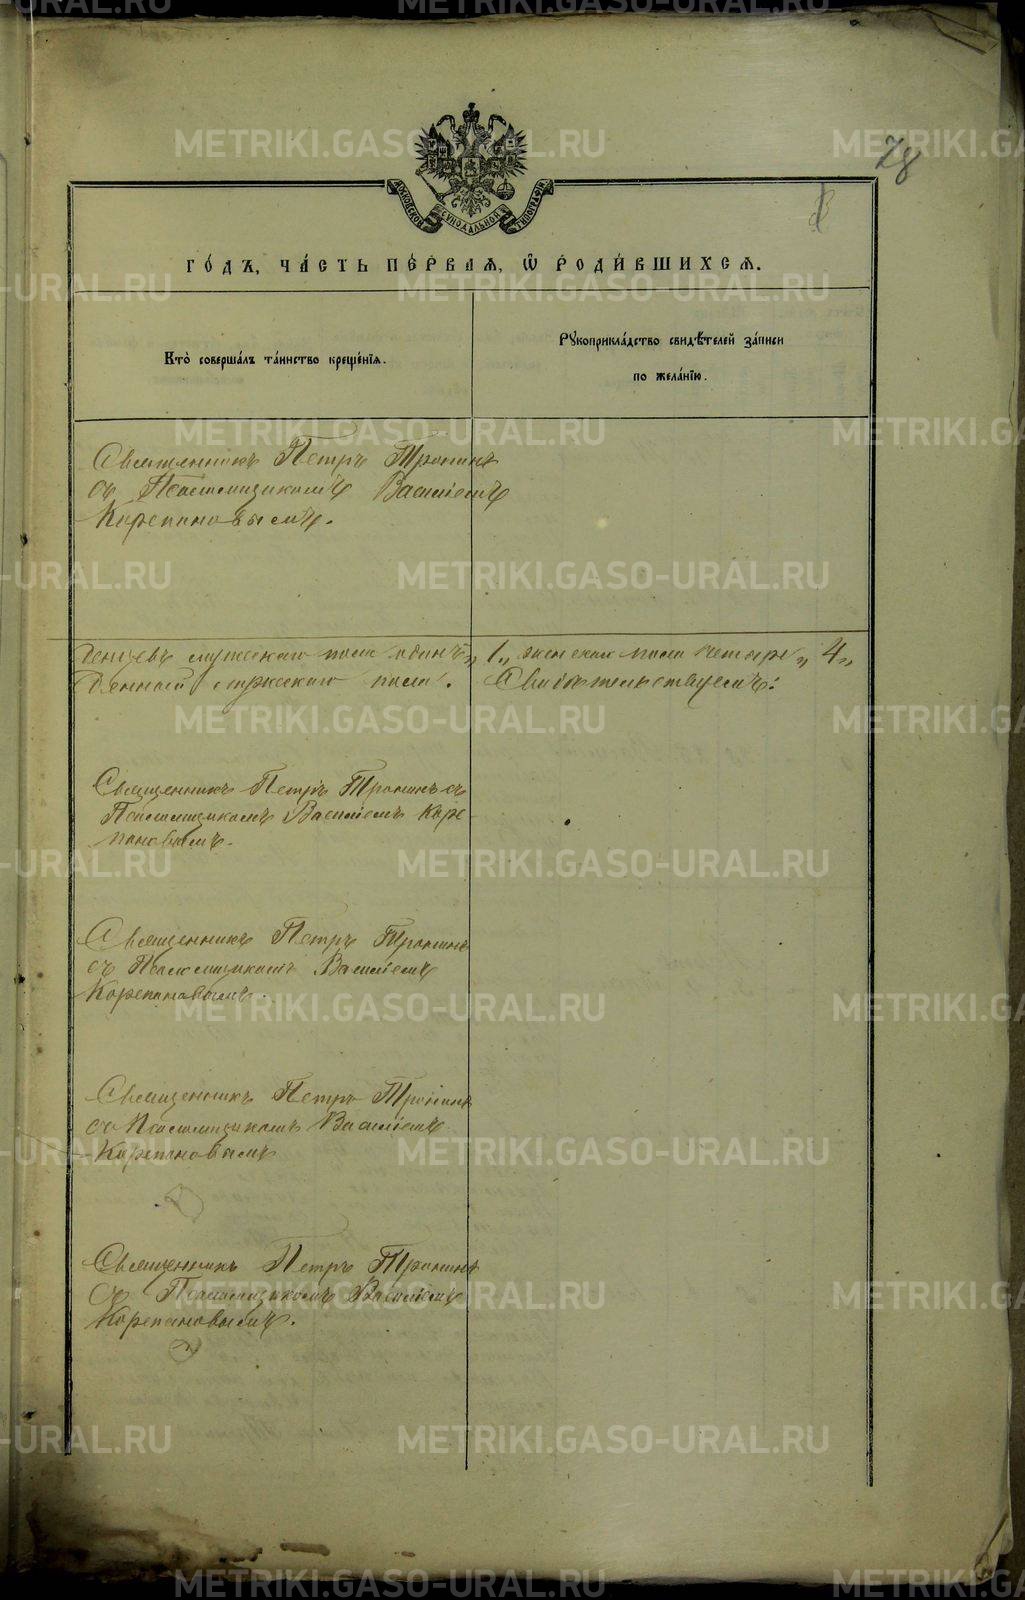 78
МОСКОВСКОЙ СѴНОДАЛЬНОЙ ТИПОГРАФІИ
ГО́ДЪ, ЧА́СТЬ ПЕ́РВАѦ, Ѡ РОДИ́ВШИХСѦ.
Кто̀ соверша́лъ та́инство креще́нїѧ.
Рꙋкоприкла́дство свидѣ́телей за́писи
по жела́нїю.
Священникъ Петръ Тронинъ
съ Псаломщикомъ Василіемъ
Корепановымъ.
мужскаго пола одинъ „1„ женскаго пола четыре „4„
мужескаго пола. Свидѣтельствуемъ:
Священникъ Петръ Тронинъ съ
Псаломщикомъ Василіемъ Коре-
пановымъ.
Священникъ Петръ Тронинъ
съ Псаломщикомъ Василіемъ
Корепановымъ.
Священникъ Петръ Тронинъ
съ Псаломщикомъ Василіемъ
Корепановымъ
Священникъ Петръ Тронинъ
съ Псаломщикомъ Василіемъ
Корепановымъ.
METRIKI.GASO-URAL.RU